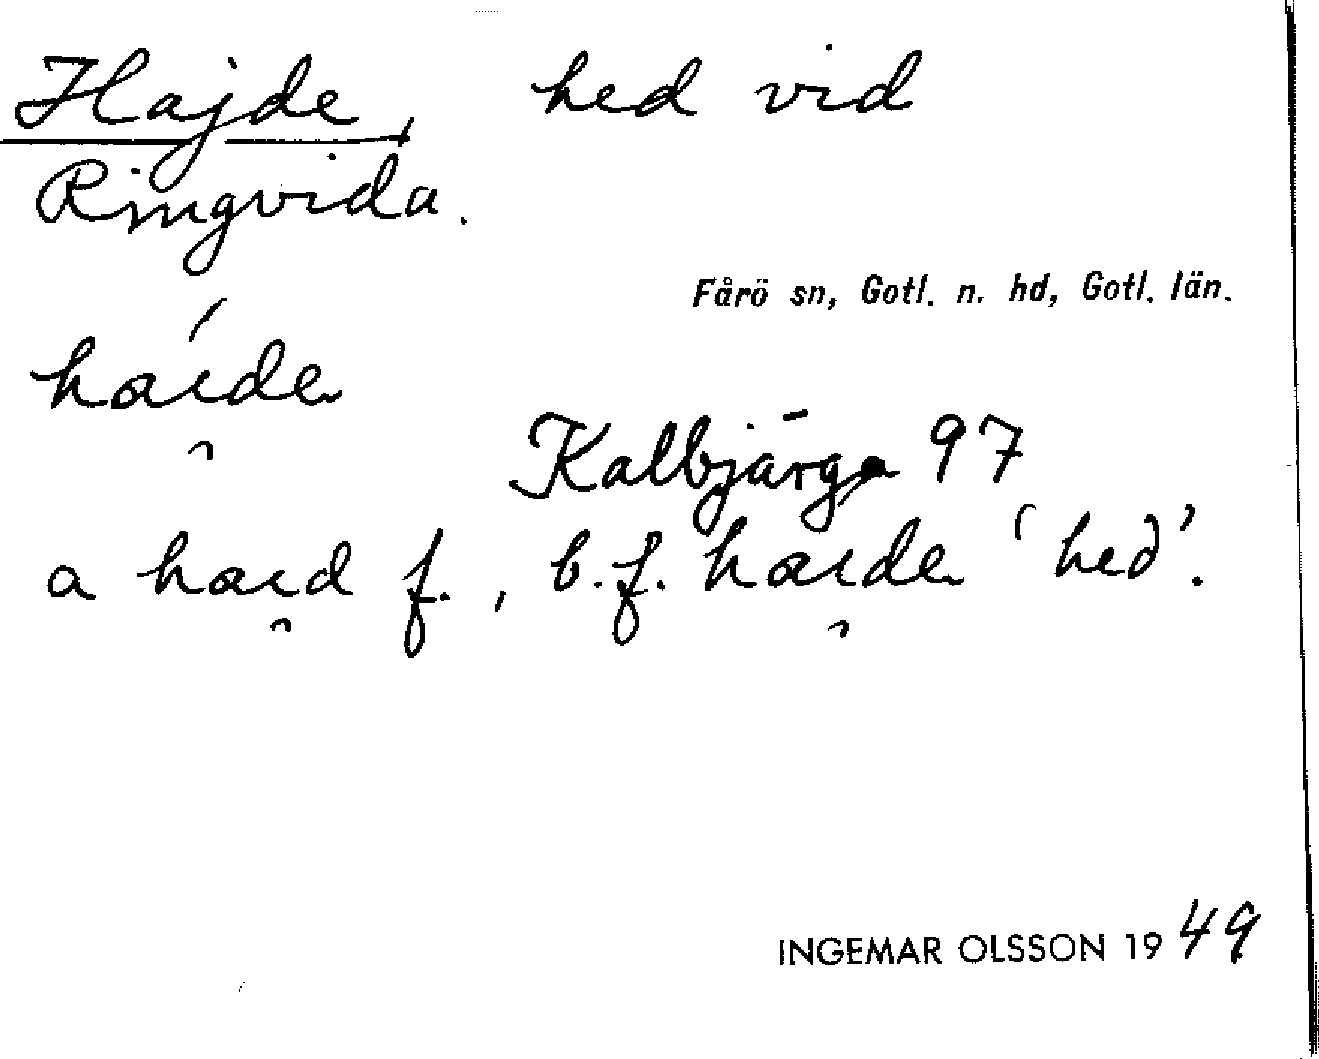 Hajde, hed vid
Ringvida.
Fårö sn, Gotl. n. hd, Gotl. län.
háı̯de
Kalbjärga 97
a haı̯d f., b.f. haı̯de 'hed'.
INGEMAR OLSSON 1949